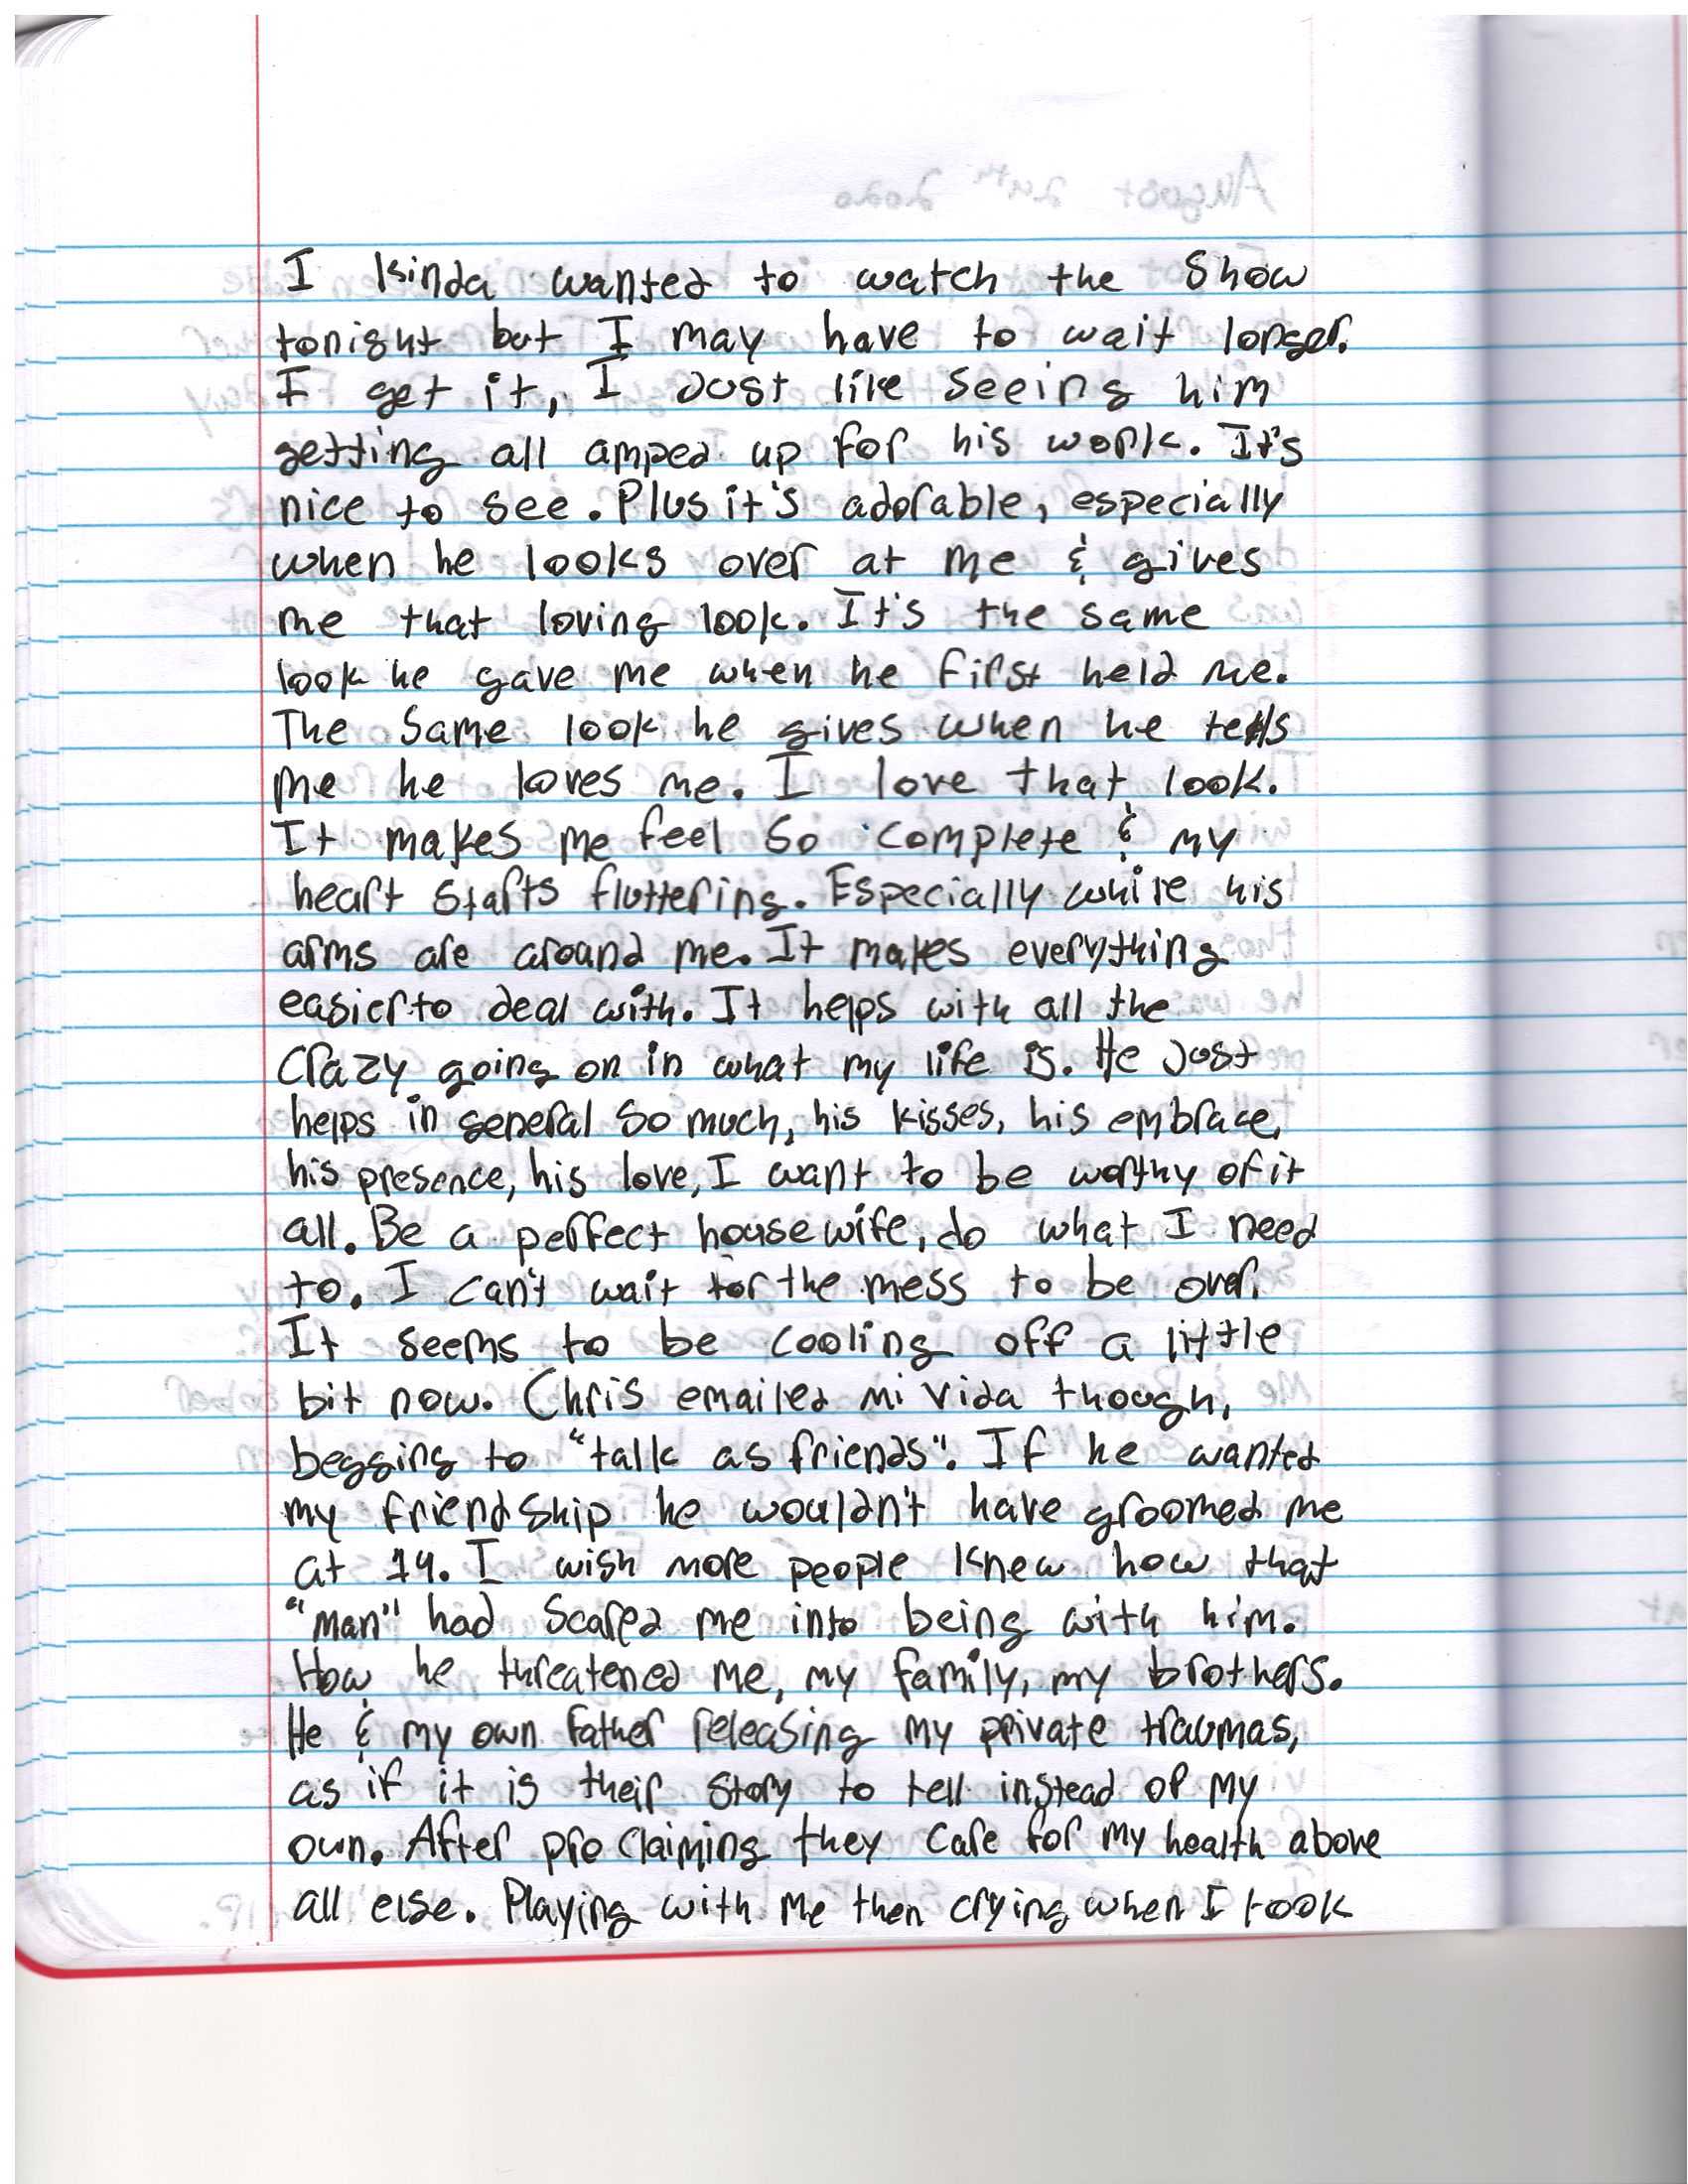 I kinda wanted to watch the Show
tonight but I may have to wait longer.
I get it, I Just like seeing him
getting all amped up for his work. It's
nice to see. Plus it's adorable, especially
when he looks over at me & gives
me that loving look. It's the same
look he gave me when he first held me.
The same look he gives when he tells
me he loves me. I love that look.
It makes me feel so complete & my
heart starts fluttering. Especially while his
arms are around me. It makes everything
easier to deal with. It helps with all the
Crazy going on in what my life is. He Just
helps in general so much, his kisses, his embrace,
his presence, his love, I want to be worthy of it
all. Be a perfect housewife, do what I need
to. I can't wait for the mess to be over.
It seems to be cooling off a little
bit now. Chris emailed mi vida though,
begging to "talk as friends". If he wanted
my friendship he wouldn't have groomed me
at 14. I wish more people knew how that
"man" had Scared me into being with him.
How he threatened me, my family, my brothers.
He & my own father releasing my private traumas,
as if it is their story to tell instead of my
own. After proclaiming they care for my health above
all else. Playing with me then crying when I took